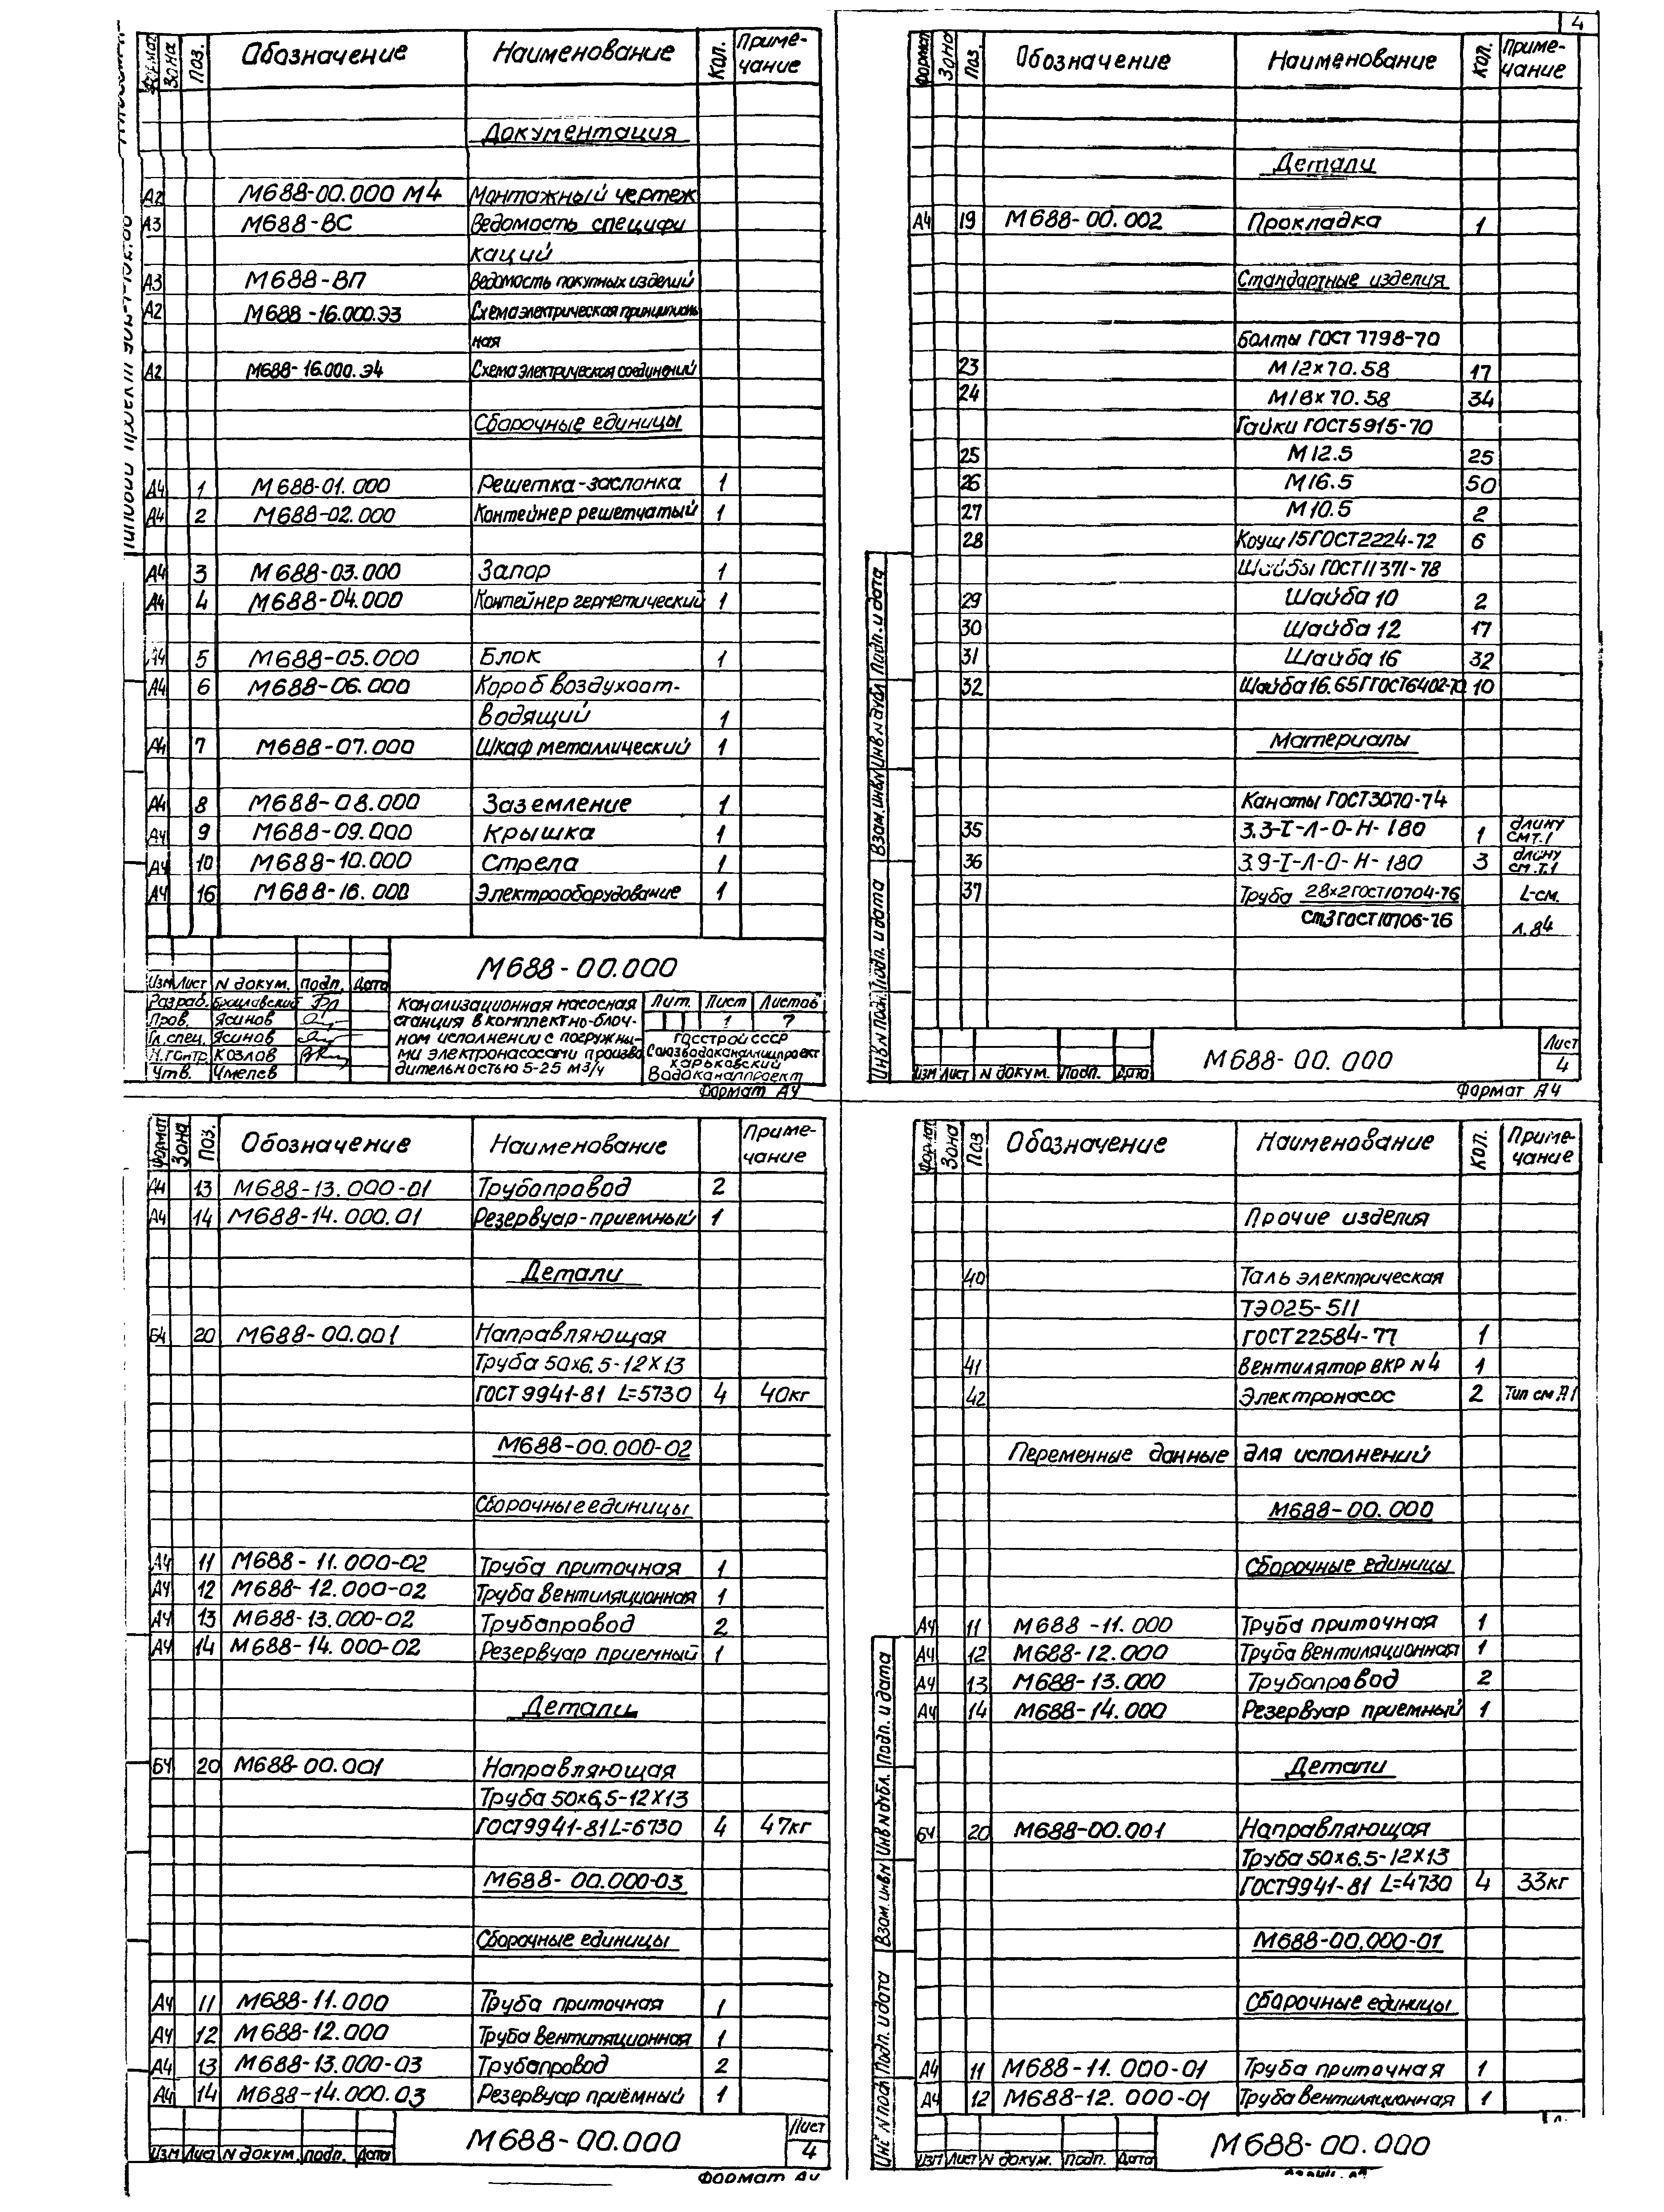 Формат Зона Поз. Обозначение Наименование Кол. Приме-
чание
Документация
А2 М688-00.000 М4 Монтажный чертеж
А3 М688-ВС Ведомость специфи
каций
А3 М688-ВП Ведомость покупных изделий
А2 М688-16.000.Э3 Схема электрическая принципиаль
ная
А2 М688-16.000.Э4 Схема электрическая соединений
Сборочные единицы
А4 1 М688-01.000 Решетка-заслонка 1
А4 2 М688-02.000 Контейнер решетчатый 1
А4 3 М688-03.000 Запор 1
А4 4 М688-04.000 Контейнер герметический 1
А4 5 М688-05.000 Блок 1
А4 6 М688-06.000 Короб воздухоот-
водящий 1
А4 7 М688-07.000 Шкаф металлический 1
А4 8 М688-08.000 Заземление 1
А4 9 М688-09.000 Крышка 1
А4 10 М688-10.000 Стрела 1
А4 16 М688-16.000 Электрооборудование 1
М688-00.000
Изм Лист N докум. Подп. Дата
Разраб. Брацлавский
Пров. Ясинов
Гл.спец. Ясинов
Н.контр. Козлов
Утв. Чмелев
Канализационная насосная
станция в комплектно-блоч-
ном исполнении с погружны-
ми электронасосами произво
дительностью 5-25 м3/ч
Лит. Лист Листов
1 7
Госстрой СССР
Союзводоканалниипроект
Харьковский
Водоканалпроект
Формат А4
4
Формат Зона Поз. Обозначение Наименование Кол. Приме-
чание
Детали
А4 19 М688-00.002 Прокладка 1
Стандартные изделия
Болты ГОСТ 7798-70
23 М12х70.58 17
24 М16х70.58 34
Гайки ГОСТ 5915-70
25 М12.5 25
26 М16.5 50
27 М10.5 2
28 Коуш 15 ГОСТ 2224-72 6
Шайбы ГОСТ 11371-78
29 Шайба 10 2
30 Шайба 12 17
31 Шайба 16 32
32 Шайба 16.65Г ГОСТ 6402-70 10
Материалы
Канаты ГОСТ 3070-74
35 3.3-I-Л-О-Н-180 1 длину
см т.1
36 3.9-I-Л-О-Н-180 3 длину
см.т.1
37 Труба 28х2 ГОСТ 10704-76 L-см.
Ст3 ГОСТ 10706-76 л.84
Инв N подл. Подп. и дата Взам. инв N Инв N дубл Подп. и дата
М688-00.000
Лист
4
Изм Лист N докум. Подп. Дата
Формат А4
Формат Зона Поз. Обозначение Наименование Приме-
чание
А4 13 М688-13.000-01 Трубопровод 2
А4 14 М688-14.000.01 Резервуар-приемный 1
Детали
Б4 20 М688-00.001 Направляющая
Труба 50х6.5-12Х13
ГОСТ 9941-81 L=5730 4 40кг
М688-00.000-02
Сборочные единицы
А4 11 М688-11.000-02 Труба приточная 1
А4 12 М688-12.000-02 Труба вентиляционная 1
А4 13 М688-13.000-02 Трубопровод 2
А4 14 М688-14.000-02 Резервуар приемный 1
Детали
БЧ 20 М688-00.001 Направляющая
Труба 50х6,5-12Х13
ГОСТ 9941-81 L=6730 4 47кг
М688-00.000-03
Сборочные единицы
А4 11 М688-11.000 Труба приточная 1
А4 12 М688-12.000 Труба вентиляционная 1
А4 13 М688-13.000-03 Трубопровод 2
А4 14 М688-14.000.03 Резервуар приёмный 1
М688-00.000
Лист
4
Изм Лист N докум. Подп. Дата
Формат А4
Формат Зона Поз Обозначение Наименование Кол. Приме-
чание
Прочие изделия
40 Таль электрическая
ТЭ025-511
ГОСТ 22584-77 1
41 Вентилятор ВКР N4 1
42 Электронасос 2 Тип см Л1
Переменные данные для исполнений
М688-00.000
Сборочные единицы
А4 11 М688-11.000 Труба приточная 1
А4 12 М688-12.000 Труба вентиляционная 1
А4 13 М688-13.000 Трубопровод 2
А4 14 М688-14.000 Резервуар приемный 1
Детали
БЧ 20 М688-00.001 Направляющая
Труба 50х6.5-12Х13
ГОСТ 9941-81 L=4730 4 33кг
М688-00.000-01
Сборочные единицы
А4 11 М688-11.000-01 Труба приточная 1
А4 12 М688-12.000-01 Труба вентиляционная 1
Инв N подл Подп. и дата Взам. инв N Инв N дубл. Подп. и дата
М688-00.000
Изм Лист N докум. Подп. Дата